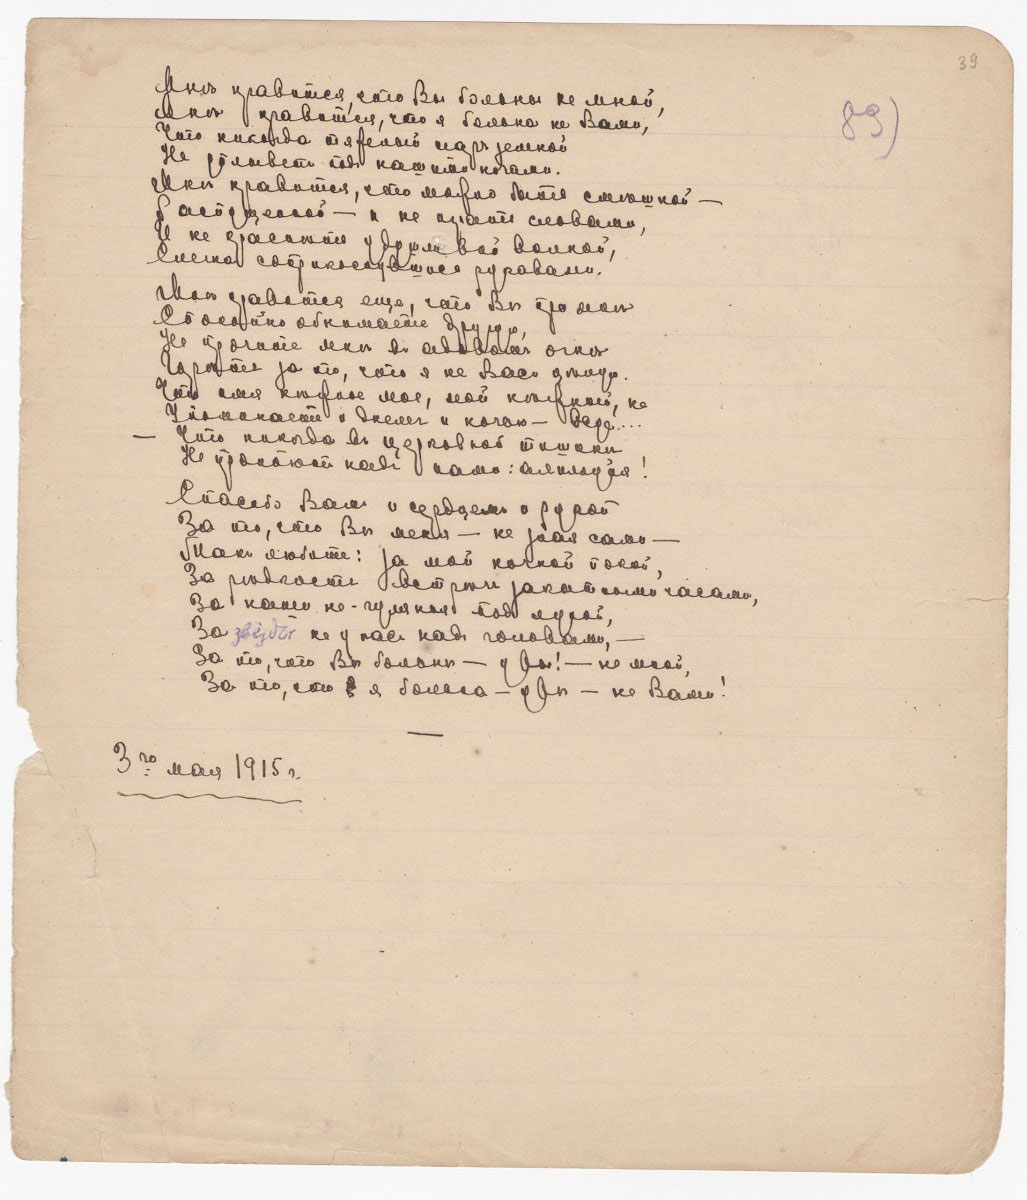 39
83)
Мнѣ нравится, что Вы больны не мной,
Мнѣ нравится, что я больна не Вами,
Что никогда тяжелый шаръ земной
Не уплыветъ подъ нашими ногами.
Мнѣ нравится, что можно быть смѣшной —
Распущенной — и не играть словами,
И не краснѣть удушливой волной,
Слегка соприкоснувшись рукавами.
Мнѣ нравится еще, что Вы при мнѣ
Спокойно обнимаете другую,
Не прочите мнѣ въ адовомъ огнѣ
Горѣть за то, что я не Васъ цѣлую.
Что имя нѣжное мое, мой нѣжный, не
Упоминаете и днемъ и ночью — всуе...
— Что никогда въ церковной тишинѣ
Не пропоютъ надъ нами: аллилуйя!
Спасибо Вамъ и сердцемъ и рукой
За то, что Вы меня — не зная сами —
Такъ любите: за мой ночной покой,
За рѣдкость встрѣчъ закатными часами,
За наши не-гулянья подъ луной,
За звѣзды не у насъ надъ головами, —
За то, что Вы больны — увы! — не мной,
За то, что я больна — увы — не Вами!
—
3го мая 1915 г.